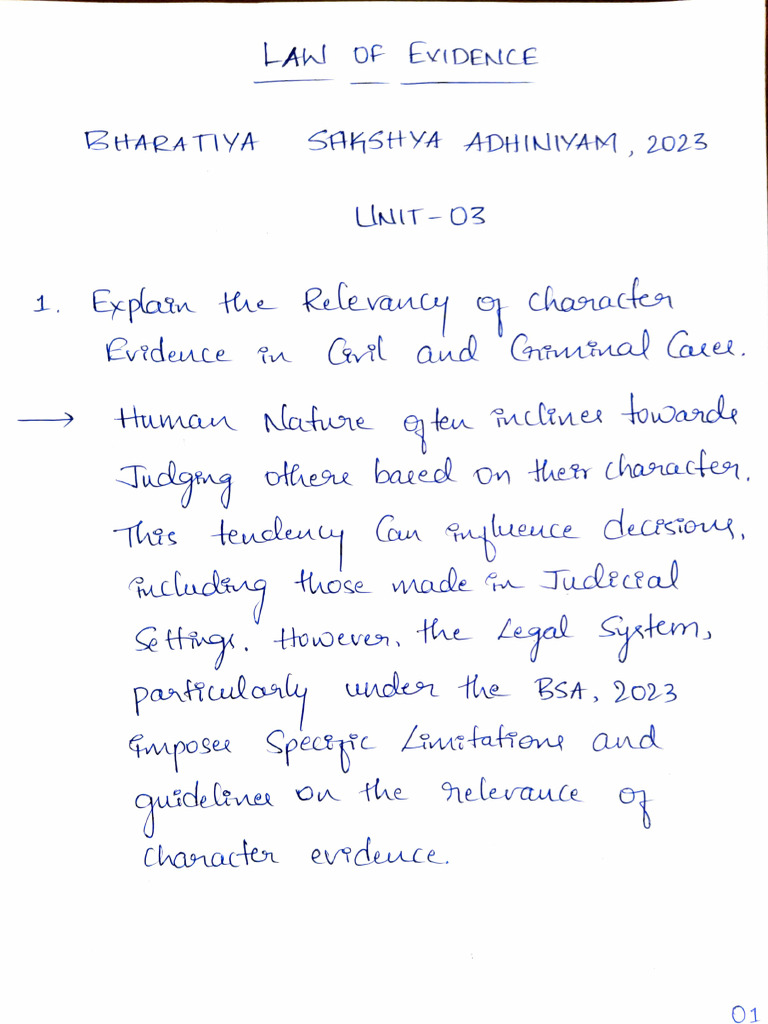 LAW OF EVIDENCE
BHARATIYA SAKSHYA ADHINIYAM, 2023
UNIT-03
1. Explain the Relevancy of character
Evidence in Civil and Criminal Cases.
→ Human Nature often inclines towards
Judging others based on their character.
This tendency Can influence decisions,
including those made in Judicial
Settings. However, the Legal System,
particularly under the BSA, 2023
imposes Specific Limitations and
guidelines on the relevance of
character evidence.
01